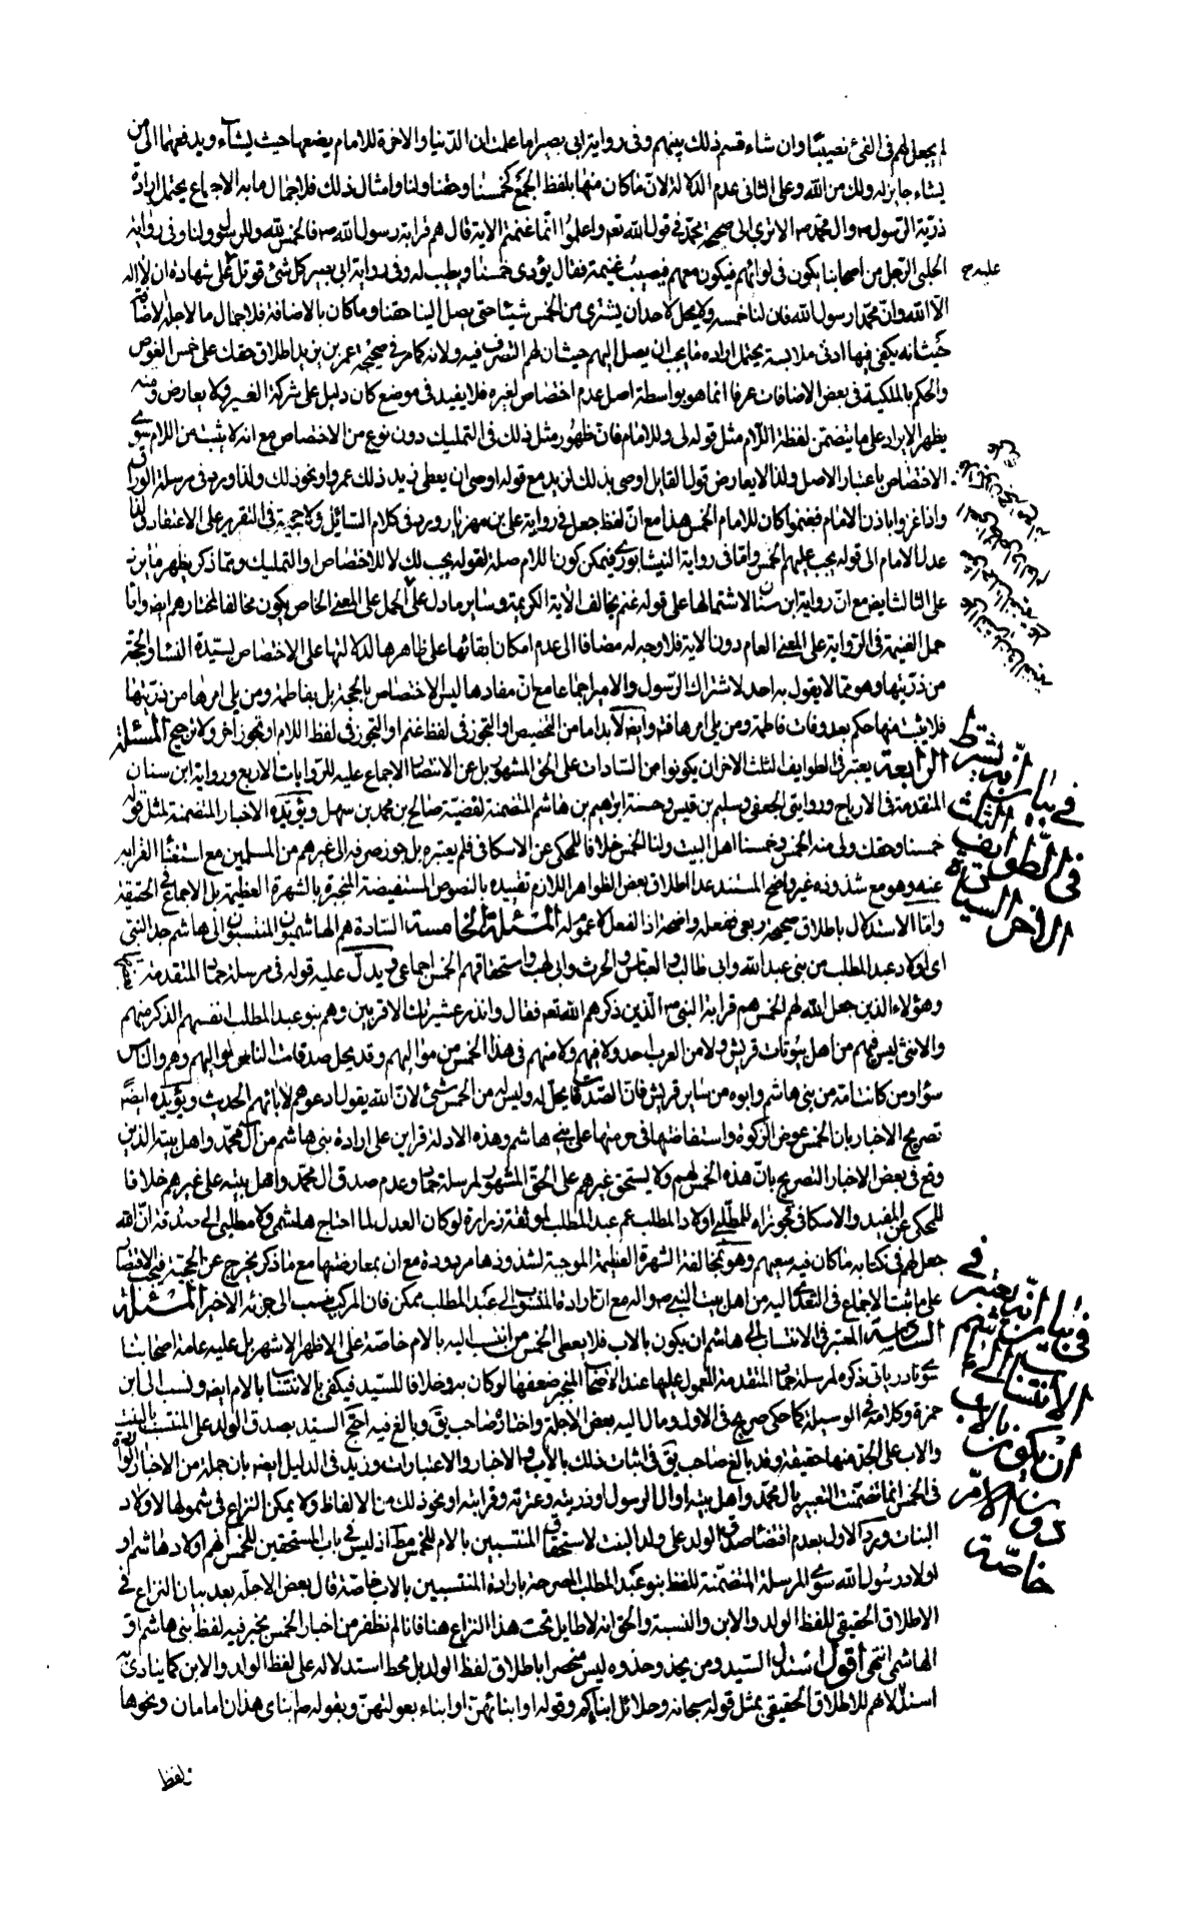 لم يجعل لهم في الفئ نصيبا وان شاء قسم ذلك بينهم وفي رواية ابي بصير اما علمت ان الدنيا والاخرة للامام يضعها حيث يشاء ويدفعهما الى من
يشاء جايز له ذلك من الله وعلى الثاني عدم الدلالة لان ما كان منها بلفظ الجمع كخمسنا وحقنا ولنا وامثال ذلك فلاجمال ما به الاجتماع يحتمل ارادة
ذرية الرسول ص وال محمد ص الا ترى الى صحيحة محمد في قول الله تعه واعلموا انما غنمتم الاية قال هم قرابة رسول الله ص فالخمس لله وللرسول ولنا وفي رواية
الحلبي الرجل من اصحابنا يكون في لوائهم فيكون معهم فيصيب غنيمة فقال يؤدي خمسنا ويطيب له وفي رواية ابي بصير كل شئ قوتل عليه على شهادة ان لا اله
الا الله وان محمدا رسول الله فان لنا خمسه ولا يحل لاحد ان يشتري من الخمس شيئا حتى يصل الينا حقنا وما كان بالاضافة فلاجمال ما لاجله الاضافة
حيث انه يكفي فيها ادنى ملابسة يحتمل ارادة ما يجب ان يصل اليهم حيث ان لهم التصرف فيه ولانه كما مر في صحيحة عمر بن يزيد اطلاق حقك على خمس الغوص
والحكم بالملكية في بعض الاضافات عرفا انما هو بواسطة اصل عدم اختصاص لغيره فلا يفيد في موضع كان دليل على شركة الغير ولا يعارضه ومنه
يظهر الايراد على ما يتضمن لفظة اللام مثل قوله لي وللامام فان ظهور مثل ذلك في التمليك دون نوع من الاختصاص مع انه لا يثبت من اللام سوى
الاختصاص باعتبار الاصل ولذا لا يعارض قول القايل اوصى بذلك لزيد مع قوله اوصى ان يعطى زيد ذلك عمروا ونحو ذلك ولذا ورد في مرسلة الوراق
واذا غزوا باذن الامام فغنموا كان للامام الخمس هذا مع ان لفظ جعل في رواية علي بن مهزيار ورد في كلام السائل ولا حجية في التقرير على الاعتقاد
عدل الامام الى قوله يجب عليهم الخمس واما في رواية النيشابوري فيمكن كون اللام صلة لقوله يجب لك لا للاختصاص والتمليك ومما ذكر يظهر ما يرد
على الثالث ايضه مع ان رواية ابن سنان لاشتمالها على قوله غنم يخالف الاية الكريمة وساير ما دل على الحمل على المعنى الخاص يكون مخالفا لمختارهم ايضه واما
حمل الغنيمة في الرواية على المعنى العام دون الاية فلا وجه له مضافا الى عدم امكان ابقائها على ظاهرها لدلالتها على الاختصاص بسيدة النساء والحجة
من ذريتها وهو مما لا يقول به احد لاشتراك الرسول والامير اجماعا مع ان مفادها ليس الاختصاص بالحجة بل بفاطمة ومن يلي امرها من ذريتها
فلا يثبت منها حكم بعد وفات فاطمة ومن يلي امرها فته وايضه لا بد اما من التخصيص او التجوز في لفظ غنم او التجوز في لفظ اللام او تجوز اخر ولا ترجيح المسئلة
الرابعة يعتبر في الطوايف الثلث الاخر ان يكونوا من السادات على الحق المشهور بل عن الانتصار الاجماع عليه للروايات الاربع ورواية ابن سنان
المتقدمة في الارباح وروايتي الجعفي وسليم بن قيس وحسنة ابراهيم بن هاشم المتضمنة لقضية صالح بن محمد بن سهل ويؤيده الاخبار المتضمنة لمثل قوله
خمسنا وحقك ولي منه الخمس وخمسنا اهل البيت ولنا الخمس خلافا للمحكي عن الاسكافي فلم يعتبره بل جوز صرفه الى غيرهم من المسلمين مع استغناء القرابة
عنه وهو مع شذوذه غير واضح المستند عدا اطلاق بعض الظواهر اللازم تقييده بالنصوص المستفيضة المنجبرة بالشهرة العظيمة بل الاجماع في الحقيقة
واما الاستدلال باطلاق صحيحة ربعي فضعفه واضح اذ الفعل لا عموم له المسئلة الخامسة السادة هم الهاشميون المنتسبون الى هاشم جد النبي
اى اولاد عبد المطلب من بني عبد الله وابي طالب والعباس والحرث وابي لهب واستحقاقهم الخمس اجماعي ويدل عليه قوله في مرسلة حماد المتقدمة
وهؤلاء الذين جعل الله لهم الخمس هم قرابة النبي ص الذين ذكرهم الله تعه فقال وانذر عشيرتك الاقربين وهم بنو عبد المطلب انفسهم الذكر منهم
والانثى ليس فيهم من اهل بيوتات قريش ولا من العرب احد ولا فيهم ولا منهم في هذا الخمس من مواليهم وقد يحل صدقات الناس لمواليهم وهم والناس
سواء ومن كانت امه من بني هاشم وابوه من ساير قريش فان الصدقات يحل له وليس له من الخمس شئ لان الله يقول ادعوهم لابائهم الحديث ويؤيده ايضه
تصريح الاخبار بان الخمس عوض الزكوة واستفاضتها في حرمتها على بني هاشم وهذه الادلة قراين على ارادة بني هاشم من آل محمد واهل بيته الذين
وقع في بعض الاخبار التصريح بان هذه الخمس لهم ولا يستحق غيرهم على الحق المشهور لمرسلة حماد وعدم صدق ال محمد واهل بيته على غيرهم خلافا
للمحكي عن المفيد والاسكافي فجوزاه للمطلبي اولاد المطلب عم عبد المطلب لموثقة زرارة لو كان العدل لما احتاج هاشمي ولا مطلبي الى صدقة ان الله
جعل لهم في كتابه ما كان فيه سعتهم وهو لمخالفة الشهرة العظيمة الموجبة لشذوذها مردودة مع ان بمعارضتها مع ما ذكر يخرج عن الحجية فيجب الاقتصار
على ما ثبت الاجماع في التعدي اليه من اهل بيت النبي ص واله مع ان ارادة المنتسب الى عبد المطلب ممكن فان المركب ينسب الى جزئه الاخير المسئلة
السادسة المعتبر في الانتساب الى هاشم ان يكون بالاب فلا يعطى الخمس من انتسب اليه بالام خاصة على الاظهر الاشهر بل عليه عامة اصحابنا
سوى نادر ياتي ذكره لمرسلة حماد المتقدمة المعمول عليها عند الاصحاب المنجبر ضعفها لو كان به وخلافا للسيد فيكفي بالانتساب بالام ايضه ونسب الى ابن
حمزة وكلامه في الوسيلة كما حكي صريح في الاول ومال اليه بعض الاجلة واختاره صاحب يق وبالغ فيه احتج السيد بصدق الولد على المنتسب بالبنت
والاب على الجد منها حقيقة وقد بالغ صاحب يق في اثبات ذلك بالاب والاخبار والاعتبارات وزيد في الدليل ايضه بان جملة من الاخبار الواردة
في الخمس انما تضمنت التعبير بال محمد واهل بيته او ال الرسول او ذريته وعترته وقرابته او نحو ذلك من الالفاظ ولا يمكن النزاع في شمولها لاولاد
البنات ويرد الاول بعدم اقتضاء صدق الولد على ولد البنت لاستحقاق المنتسبين بالام للخمس مط اذ ليس في باب المستحقين للخمس انهم اولاد هاشم او
اولاد رسول الله سوى المرسلة المتضمنة للفظ بنو عبد المطلب المصرحة بارادة المنتسبين بالاب خاصة قال بعض الاجلة بعد بيان النزاع في
الاطلاق الحقيقي للفظ الولد والابن والنسبة والحق انه لا طايل تحت هذا النزاع هنا فانا لم نظفر من اخبار الخمس بخبر فيه لفظ بني هاشم او
الهاشمي انتهى اقول استدلال السيد ومن يحذو حذوه ليس منحصرا باطلاق لفظ الولد بل محط استدلاله على لفظ الولد والابن كما ينادي به
استدلالهم للاطلاق الحقيقي بمثل قوله سبحانه وحلائل ابنائكم وقوله او ابنائهن او ابناء بعولتهن وبقوله ص ابناى هذان امامان ونحوها
عليه ص
في بيان انه يشترط
في الطوايف الثلث
الاخر السيادة
في بيان انه يعتبر في
الانتساب الى هاشم
ان يكون بالاب
دون الام
خاصة
لفظ